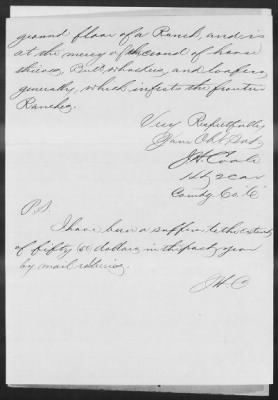 ground floor of a Ranch, and is
at the mercy of the crowd of horse
thieves, Bull whackers, and loafers
generally, which infests the frontier
Ranches.
Very Respectfully
Your Obt Svt
J H
Comdg Co
P.S.
I have been a sufferer to the extent
of fifty (50) dollars in the past year
by mail robberies.
J H C